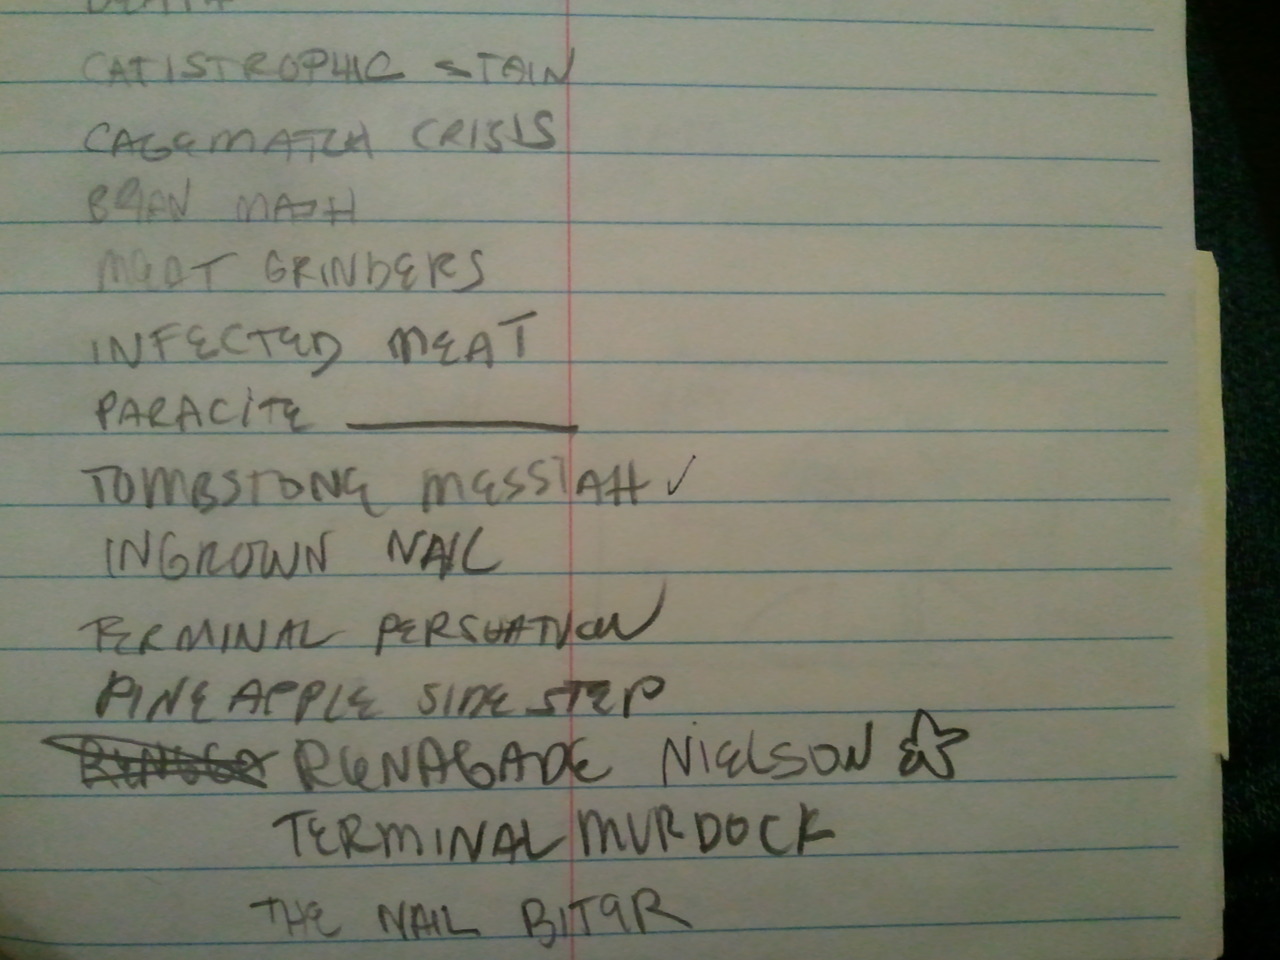 DEATH
CATISTROPHIC STAIN
CAGEMATCH CRISIS
MEAT GRINDERS
INFECTED MEAT
PARACITE
TOMBSTONE MESSIAH ✓
INGROWN NAIL
TERMINAL PERSUATION
PINEAPPLE SIDE STEP
RENAGADE NIELSON
TERMINAL MURDOCK
THE NAIL BITER